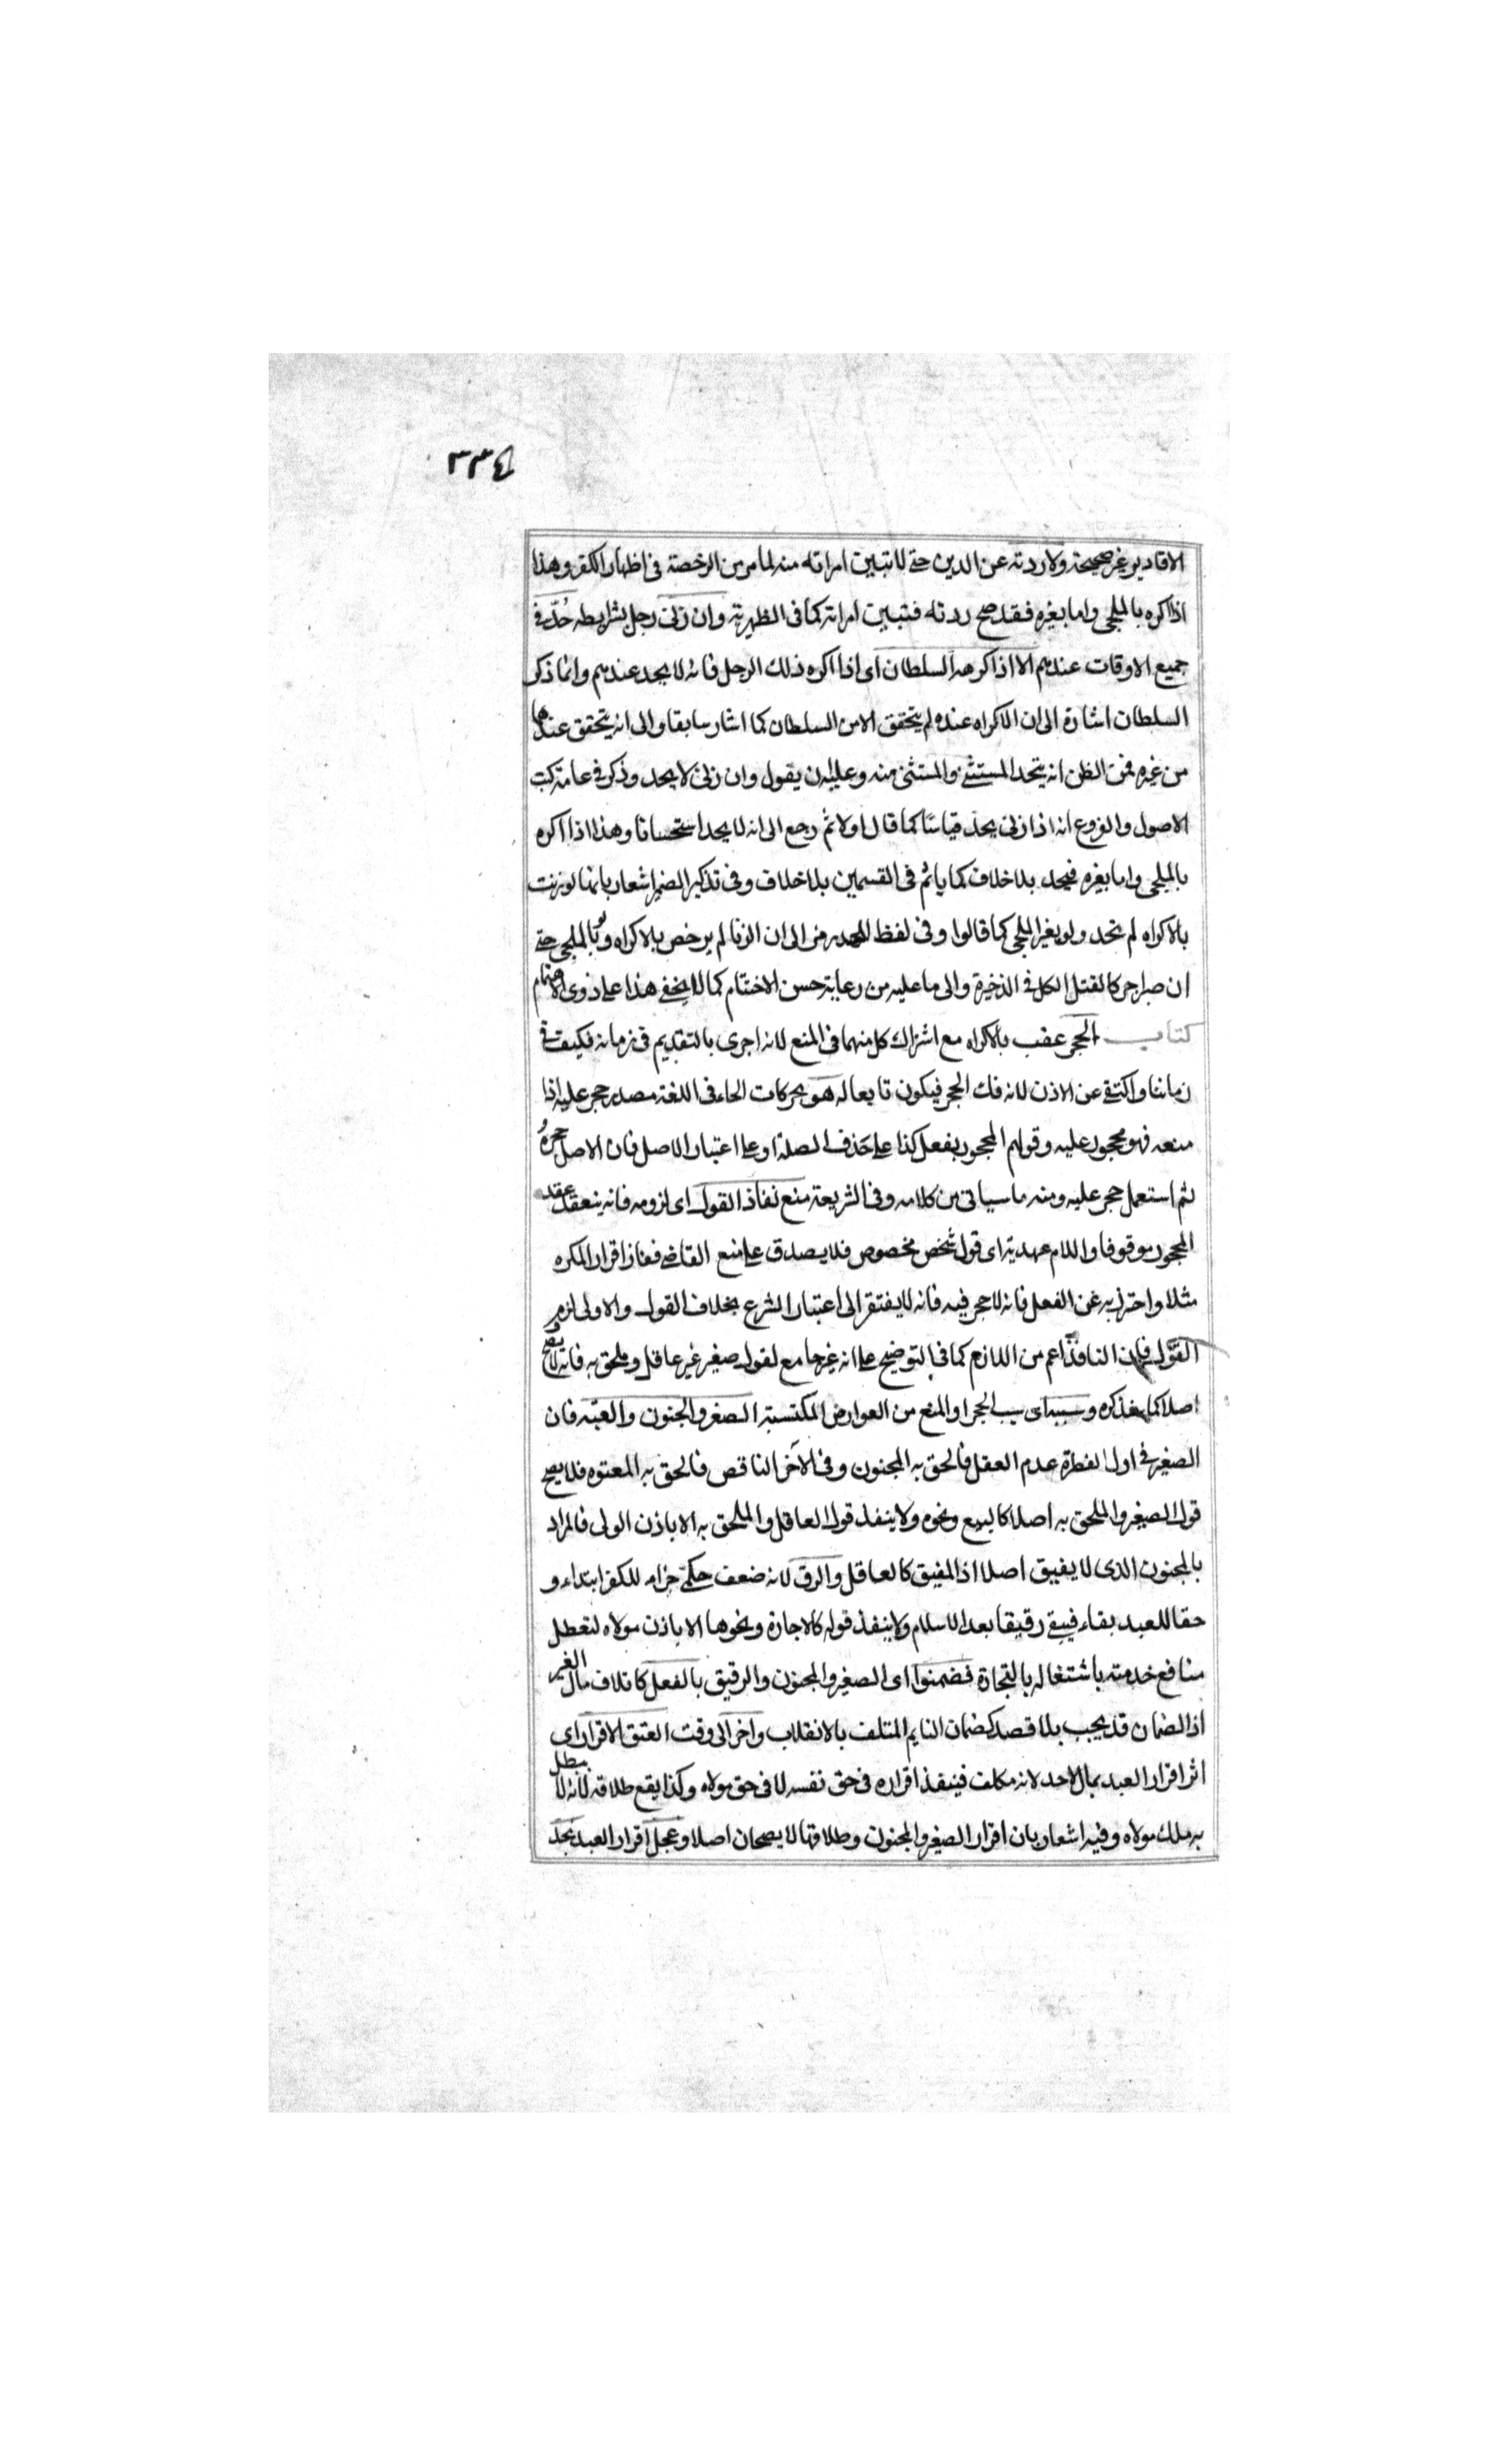 ٣٣٤
الاقارير غير صحيحة ولا ردته عن الدين حتى لا تبين امراته منه لما مر من الرخصة فى اظهار الكفر وهذا
اذا اكره بالملجى واما بغيره فقد صح ردته فتبين امراته كما فى الظهيرية وان زنى رجل بشرايطه حُدّ فى
جميع الاوقات عندهم الا اذا اكرهه السلطان اى اذا اكره ذلك الرجل فانه لا يحد عندهم وانما ذكر
السلطان اشارة الى ان الاكراه عنده لم يتحقق الا من السلطان كما اشار سابقا والى انه يتحقق عندهما
من غيره فمن الظن انه يتحد المستثنى والمستثنى منه وعليه ان يقول وان زنى لا يحد وذكر فى عامة كتب
الاصول والفروع انه اذا زنى يحد قياسا كما قال اولا ثم رجع الى انه لا يحد استحسانا وهذا اذا اكره
بالملجى واما بغيره فيحد بلا خلاف كما ياثم فى القسمين بلا خلاف وفى تذكير الضمير اشعار بانها لو زنت
بالاكراه لم تحد ولو بغير الملجى كما قالوا وفى لفظ الحد رمز الى ان الزنا لم يرخص بالاكراه ولو بالملجى حتى
ان صبر اجر كالقتل الكل فى الذخيرة والى ما عليه من رعاية حسن الاختتام كما لا يخفى هذا على ذوى الاهتمام
كتاب الحجر عقب بالاكراه مع اشتراك كل منهما فى المنع لانه اجرى بالتقديم فى زمانه فكيف فى
زماننا واكتفى عن الاذن لانه فك الحجر فيكون تابعا له هو بحركات الحاء فى اللغة مصدر حجر عليه اذا
منعه فهو محجور عليه وقولهم المحجور يفعل كذا على حذف الصلة او على اعتبار الاصل فان الاصل حجره
ثم استعمل حجر عليه ومنه ما سياتى من كلامه وفى الشريعة منع نفاذ القول اى لزومه فانه ينعقد عقد
المحجور موقوفا واللام عهدية اى قول شخص مخصوص فلا يصدق على منع القاضى نفاذ اقرار المكره
مثلا واحترز به عن الفعل فانه لا حجر فيه فانه لا يفتقر الى اعتبار الشرع بخلاف القول والاولى لزوم
القول فان النافذ اعم من اللازم كما فى التوضيح على انه غير جامع لقول صغير غير عاقل وملحق به فانه لا يصح
اصلا كما سنذكره وسببه اى سبب الحجر او المنع من العوارض المكتسبة الصغر والجنون والعته فان
الصغير فى اول الفطرة عدم العقل فالحق به المجنون وفى الآخر الناقص فالحق به المعتوه فلا يصح
قول الصغير والملحق به اصلا كالبيع ونحوه ولا ينفذ قول العاقل والملحق به الا باذن الولى فالمراد
بالمجنون الذى لا يفيق اصلا اذ المفيق كالعاقل والرق لانه ضعف حكمى جزاء للكفر ابتداء و
حقا للعبد بقاء فيبقى رقيقا بعد الاسلام ولا ينفذ قوله كالاجازة ونحوها الا باذن مولاه لتعطل
منافع خدمته باشتغاله بالتجارة فضمنوا اى الصغير والمجنون والرقيق بالفعل كاتلاف مال الغير
اذ الضمان قد يجب بلا قصد كضمان النايم المتلف بالانقلاب واخر الى وقت العتق الاقرار اى
اثر اقرار العبد بمال لاحد لانه مكلف فينفذ اقراره فى حق نفسه لا فى حق مولاه وكذا يقع طلاقه لانه لا يبطل
به ملك مولاه وفيه اشعار بان اقرار الصغير والمجنون وطلاقهما لا يصحان اصلا وعجل اقرار العبد بحد